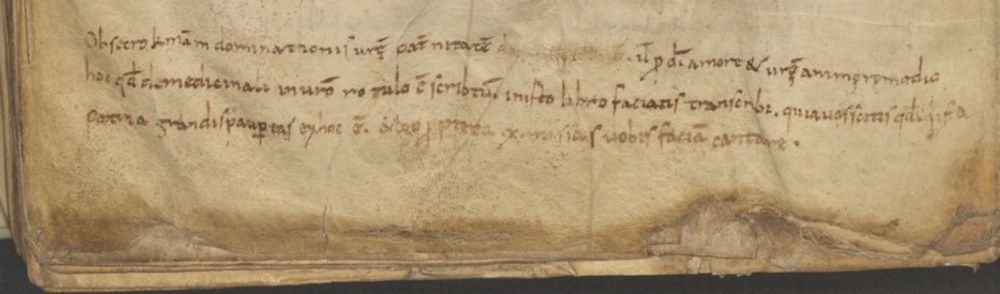 Obsecro kmam dominationis urae pat nitate ut p di amore & urae anime remedio
hoc qd de medicinali in uro rotulo e scribtu. in isto libro faciatis transcribi. quia uos scitis qd in ista
patria grandis paupertas ex hoc e. & ego ppterea .x. missas uobis facia cantare.